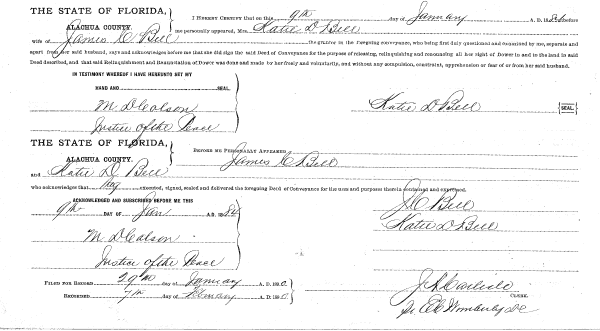 THE STATE OF FLORIDA,
ALACHUA COUNTY.
I HEREBY CERTIFY that on this 9th day of January A.D. 18 before
me personally appeared, Mrs. Katie D Bell
wife of James C Bell the grantor in the foregoing conveyance, who being first duly questioned and examined by me, separate and
apart from her said husband, says and acknowledges before me that she did sign the said Deed of Conveyance for the purpose of releasing, relinquishing and renouncing all her right of Dower in and to the land in said
Deed described, and that said Relinquishment and Renunciation of Dower was done and made by her freely and voluntarily, and without any compulsion, constraint, apprehension or fear of or from her said husband.
IN TESTIMONY WHEREOF I HAVE HEREUNTO SET MY
HAND AND SEAL.
M. D Colson
Justice of the Peace
Katie D Bell SEAL.
THE STATE OF FLORIDA,
ALACHUA COUNTY.
BEFORE ME PERSONALLY APPEARED
James C Bell
and Katie D. Bell
who acknowledges that they executed, signed, sealed and delivered the foregoing Deed of Conveyance for the uses and purposes therein contained and expressed.
ACKNOWLEDGED AND SUBSCRIBED BEFORE ME THIS
9th DAY OF Jan A.D. 18
J C Bell
Katie D Bell
M. D Colson
Justice of the Peace
FILED FOR RECORD day of January A. D. 188
RECORDED 7th day of February A.D. 188
J A Carlisle
CLERK.